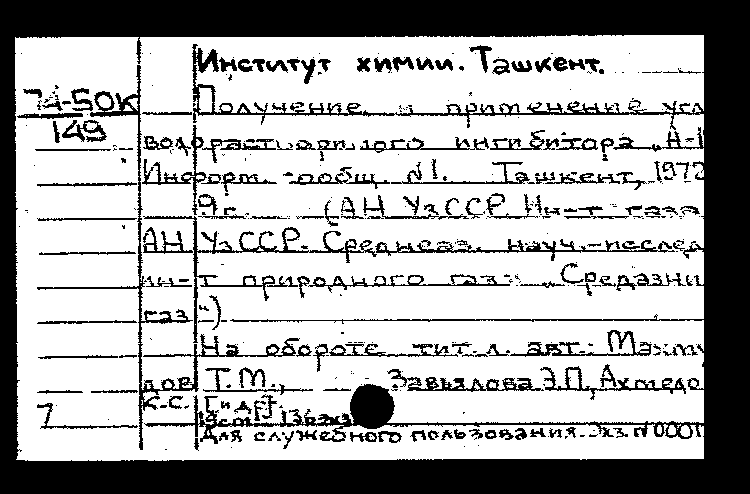 Институт химии. Ташкент.
74-50К
149
Получение и применение угл
водорастворимого ингибитора „А-1
Информ. сообщ. №1. Ташкент, 1972
9с. (АН УзССР. Ин-т
АН УзССР. Среднеаз. науч.-исслед
ин-т природного газа „Средазни
газ“)
На обороте тит. л. авт.: Махму
дов Т.М., Завьялова Э.П., Ахмедо
К.С. и др.
7
Для служебного пользования. Экз. №0001